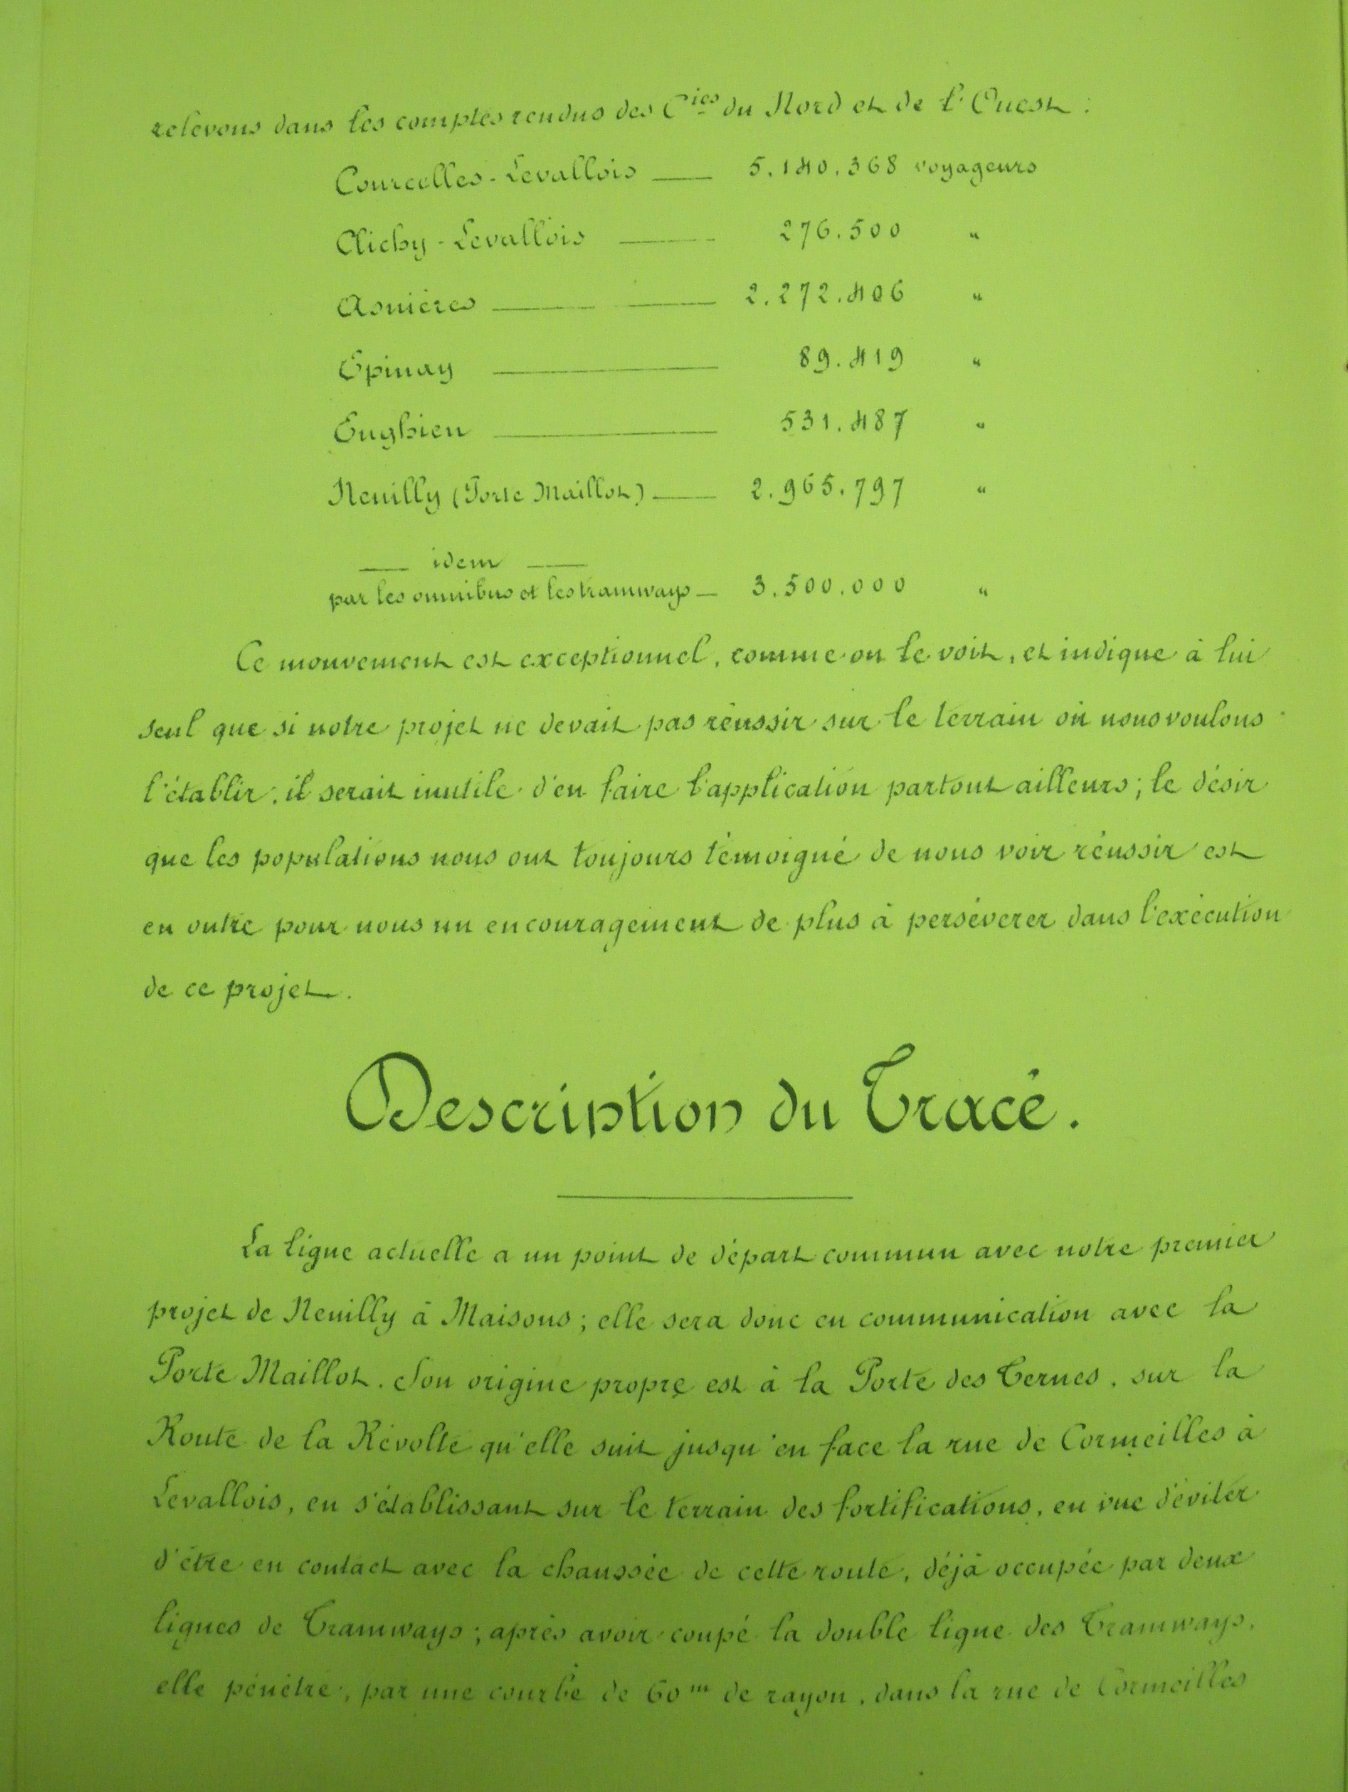 relevons dans les comptes rendus des Cies du Nord et de l'Ouest :
Courcelles-Levallois — 5.140.368 voyageurs
Clichy-Levallois — 276.500 "
Asnières — 2.272.406 "
Epinay — 89.419 "
Enghien — 531.487 "
Neuilly (Porte Maillot) — 2.965.797 "
— idem —
par les omnibus et les tramways — 3.500.000 "
Ce mouvement est exceptionnel, comme on le voit, et indique à lui
seul que si notre projet ne devait pas réussir sur le terrain où nous voulons
l'établir, il serait inutile d'en faire l'application partout ailleurs; le désir
que les populations nous ont toujours témoigné de nous voir réussir est
en outre pour nous un encouragement de plus à persévérer dans l'exécution
de ce projet.
Description du Tracé.
La ligne actuelle a un point de départ commun avec notre premier
projet de Neuilly à Maisons; elle sera donc en communication avec la
Porte Maillot. Son origine propre est à la Porte des Ternes, sur la
Route de la Révolte qu'elle suit jusqu'en face la rue de Cormeilles à
Levallois, en s'établissant sur le terrain des fortifications, en vue d'éviter
d'être en contact avec la chaussée de cette route, déjà occupée par deux
lignes de Tramways; après avoir coupé la double ligne des Tramways,
elle pénètre, par une courbe de 60m de rayon, dans la rue de Cormeilles